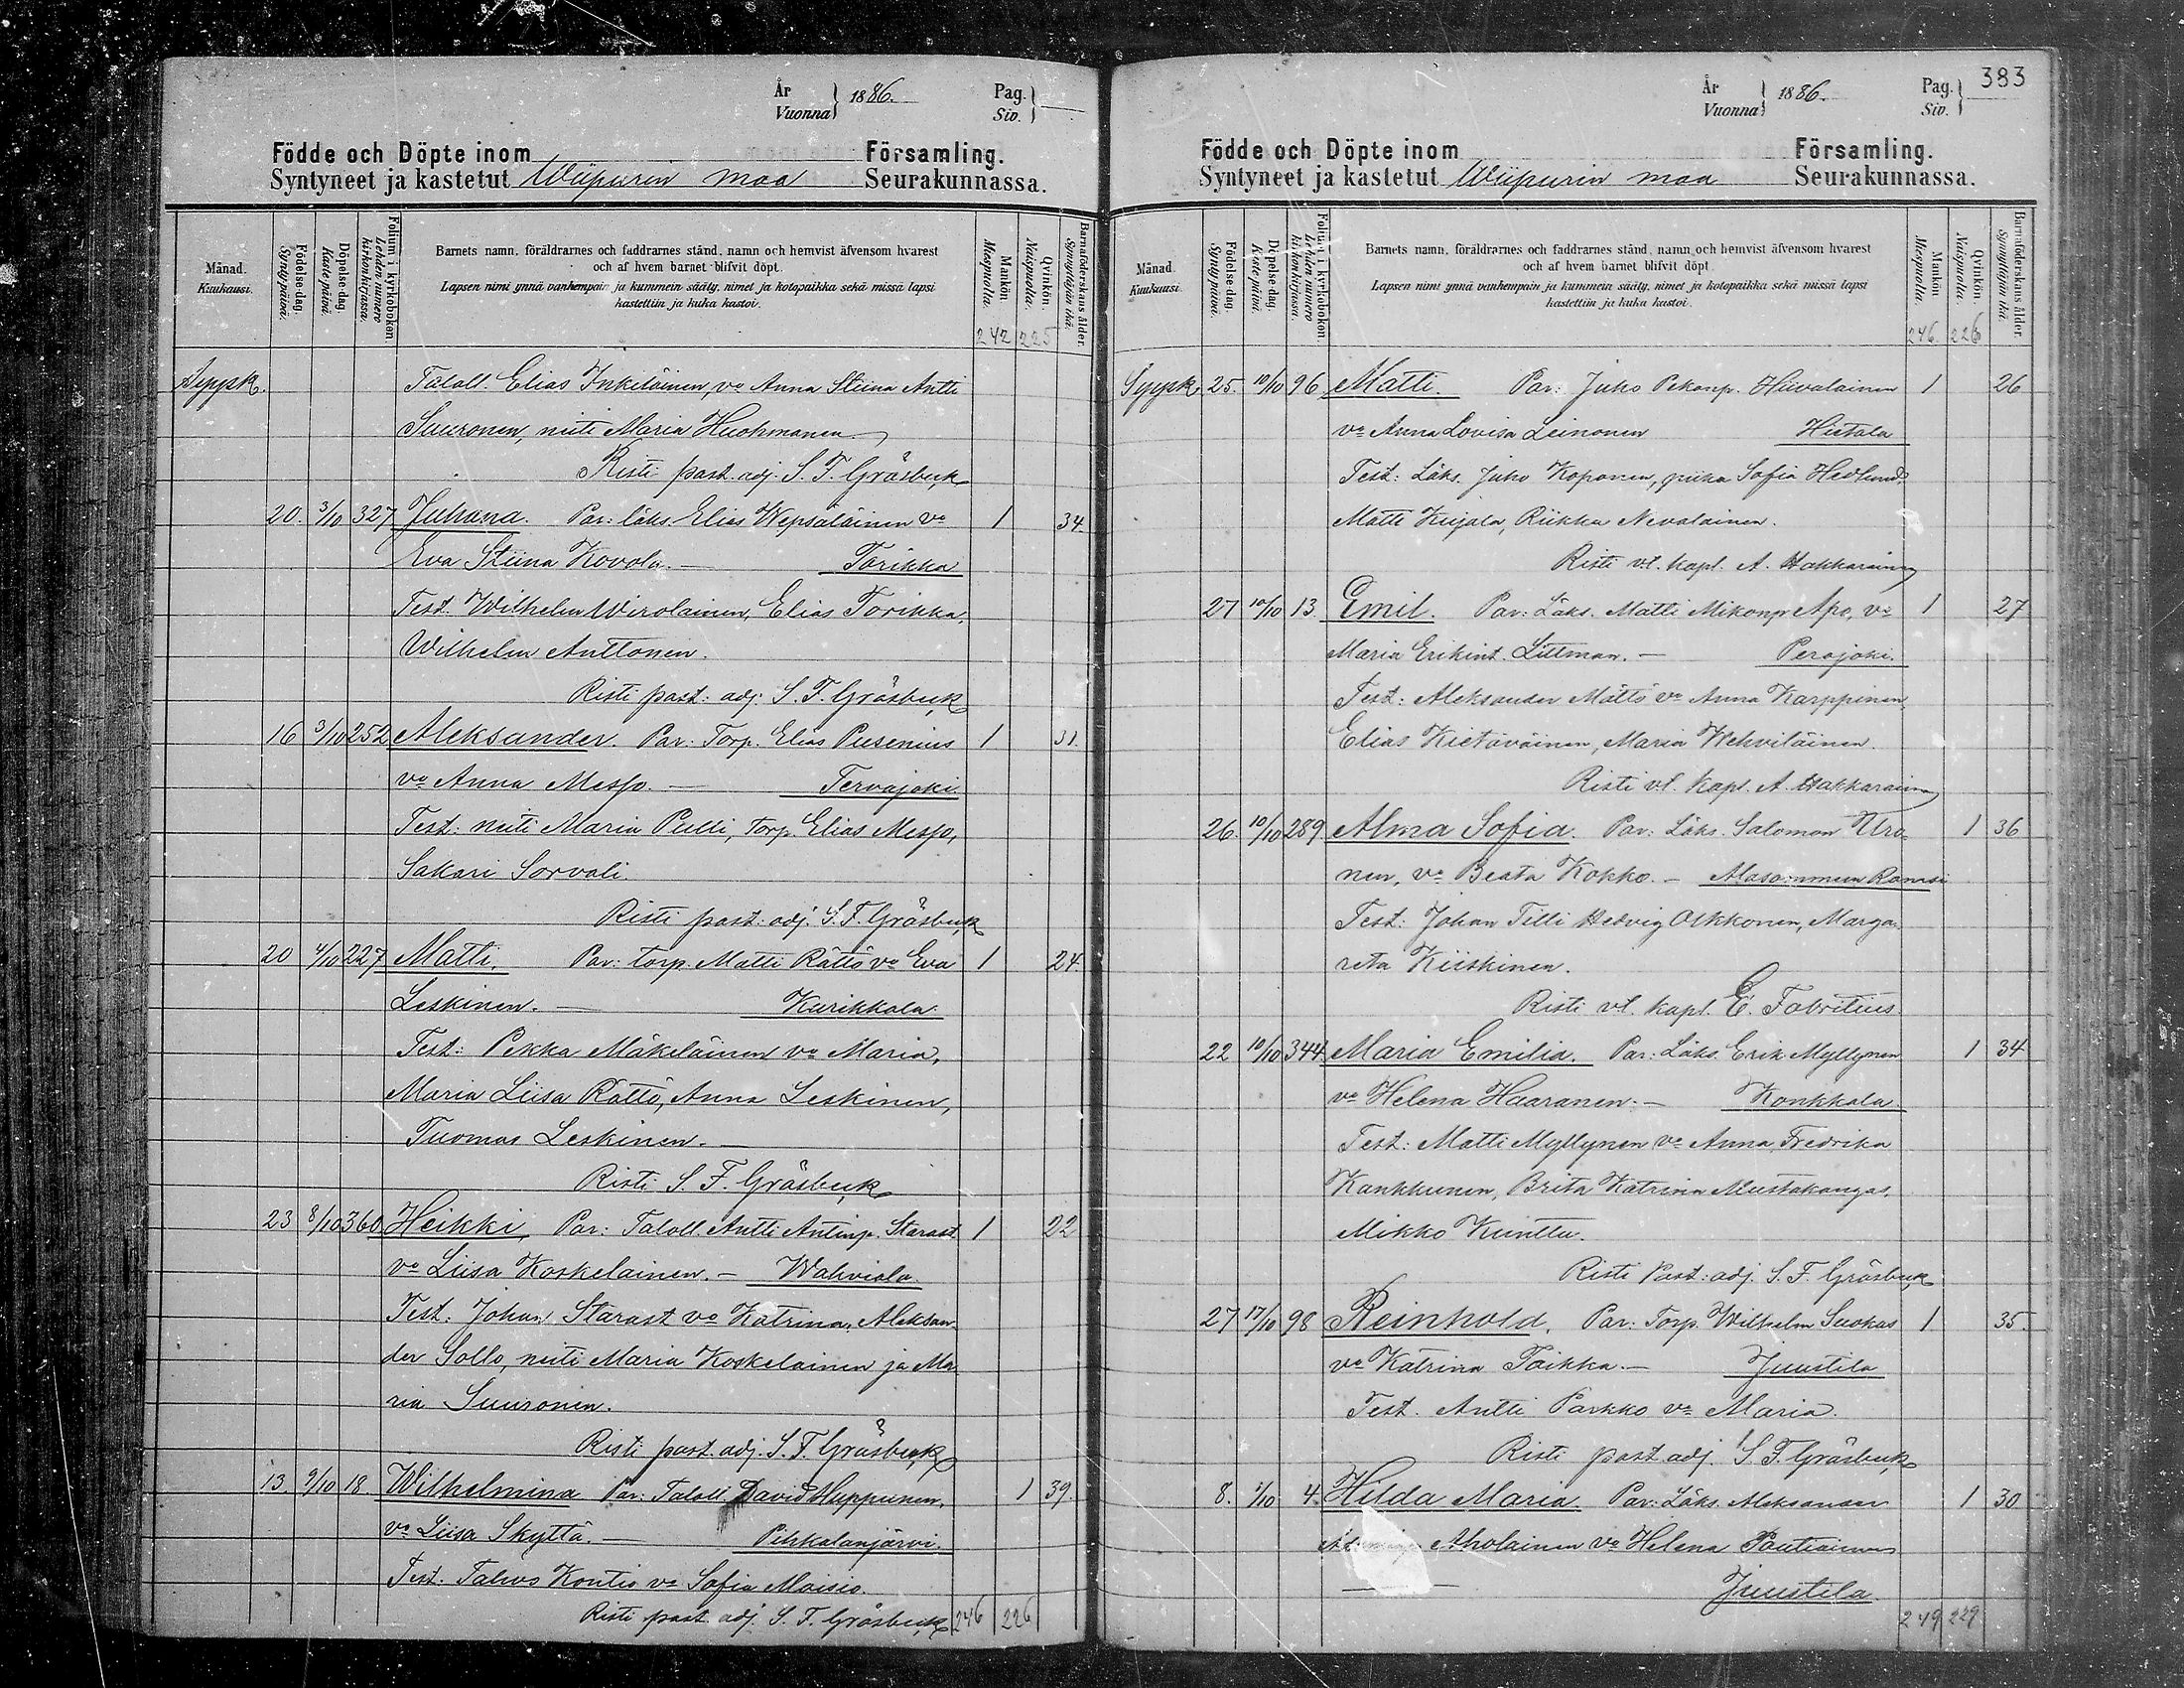 År
Vuonna } 1886. Pag.
Siv. }
Födde och Döpte inom Församling.
Syntyneet ja kastetut Wiipurin maa Seurakunnassa.
Månad.
Kuukausi.
Födelse-dag.
Syntypäivä.
Döpelse-dag.
Kastepäivä.
Folium i kyrkoboken
Lehden numero
kirkonkirjassa.
Barnets namn, föräldrarnes och faddrarnes stånd, namn och hemvist äfvensom hvarest
och af hvem barnet blifvit döpt.
Lapsen nimi ynnä vanhempain ja kummein sääty, nimet ja kotopaikka sekä missä lapsi
kastettiin ja kuka kastoi.
Mankön
Miespuolia.
Qvinkön.
Naispuolia.
Barnaföderskans ålder.
Synnyttäjän ikä.
242 225
Syysk. Taloll. Elias Inkiläinen, vo Anna Stiina Antti
Suuronen, neiti Maria Huohmanen
Risti past. adj. S. F. Gräsbeck
20. 3/10 327 Juhana. Par: läks. Elias Wepsäläinen vo 1 34.
Eva Stiina Kovola. — Torikka
Test. Wilhelm Wirolainen, Elias Torikka,
Wilhelm Anttonen.
Risti past: adj. S. F. Gräsbeck
16 3/10 252 Aleksander. Par: Torp. Elias Pusenius 1 31.
vo Anna Mesjo. — Tervajoki.
Test: neiti Maria Pulli, Torp. Elias Mesjo,
Sakari Sorvali.
Risti past: adj. S. F. Gräsbeck
20 4/10 227 Matti. Par: torp. Matti Rättö vo Eva 1 24.
Leskinen. — Kurikkala.
Test: Pekka Mäkeläinen vo Maria,
Maria Liisa Rättö, Anna Leskinen,
Tuomas Leskinen. —
Risti S. F. Gräsbeck
23 8/10 360 Heikki. Par: Taloll. Antti Antinp. Starast 1 22
vo Liisa Koskelainen. — Wahviala.
Test: Johan Starast vo Katrina, Aleksan-
der Sollo, neiti Maria Koskelainen ja Ma-
ria Suuronen.
Risti past. adj. S. F. Gräsbeck
13. 9/10 18. Wilhelmina Par: Taloll David Huppunen, 1 39.
vo Liisa Skyttä. — Pihkalanjärvi.
Test. Tahvo Kontio vo Sofia Moisio.
Risti past. adj. S. F. Gräsbeck 246 226
År
Vuonna } 1886. Pag.
Siv. } 383
Födde och Döpte inom Församling.
Syntyneet ja kastetut Wiipurin maa Seurakunnassa.
Månad.
Kuukausi.
Födelse-dag.
Syntypäivä.
Döpelse-dag.
Kastepäivä.
Folium i kyrkoboken
Lehden numero
kirkonkirjassa.
Barnets namn, föräldrarnes och faddrarnes stånd, namn och hemvist äfvensom hvarest
och af hvem barnet blifvit döpt.
Lapsen nimi ynnä vanhempain ja kummein sääty, nimet ja kotopaikka sekä missä lapsi
kastettiin ja kuka kastoi.
Mankön
Miespuolia.
Qvinkön.
Naispuolia.
Barnaföderskans ålder.
Synnyttäjän ikä.
246. 226
Syysk. 25. 10/10 96 Matti. Par: Juho Pekanp. Hiivalainen 1 26
vo Anna Lovisa Leinonen Hietala
Test: Läks. Juho Koponen, piika Sofia Hedlund
Matti Kujala, Riikka Nevalainen.
Risti vt. kapl. A. Hakkarainen
27 10/10 13. Emil. Par: Läks. Matti Mikonp Apo, vo 1 27
Maria Erikint. Littman. — Perojoki.
Test: Aleksander Mättö vo Anna Karppinen
Elias Kietäväinen, Maria Wehviläinen.
Risti vt. kapl. A. Hakkarainen
26. 10/10 289 Alma Sofia. Par: Läks. Salomon Uro- 1 36
nen, vo Beata Kokko. — Alasommeen Ramsi
Test: Johan Tilli Hedvig Olkkonen, Marga-
reta Kiiskinen.
Risti vt. kapl. E. Fabritius.
22 10/10 344 Maria Emilia. Par: Läks. Erik Myllynen 1 34
vo Helena Haaranen. — Konkkala
Test: Matti Myllynen vo Anna, Fredrika
Kankkunen, Brita Katrina Mustakangas,
Mikko Kunttu.
Risti Past: adj. S. F. Gräsbeck
27 17/10 98 Reinhold. Par: Torp. Wilhelm Suokas 1 35.
vo Katrina Taikka. — Juustila
Test. Antti Parkko vo Maria.
Risti past. adj. S. F. Gräsbeck
8. /10 4. Hilda Maria. Par: Läks. Aleksander 1 30
Aholainen vo Helena Pautiainen
Juustila.
249 229